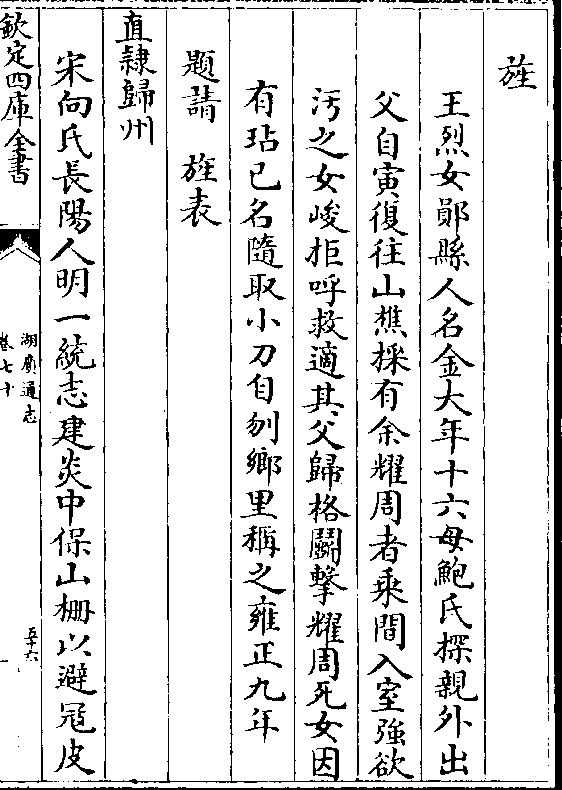 旌
王烈女鄖縣人名金大年十六母鮑氏探親外出
父自寅復往山樵採有余耀周者乘間入室強欲
汚之女峻拒呼救適其父歸格鬭擊耀周死女因
有玷己名隨取小刀自刎鄉里稱之雍正九年
題請 旌表
直𨽻歸州
宋向氏長陽人明一統志建炎中保山柵以避冦皮
欽定四庫全書
湖廣通志
卷七十
五十六